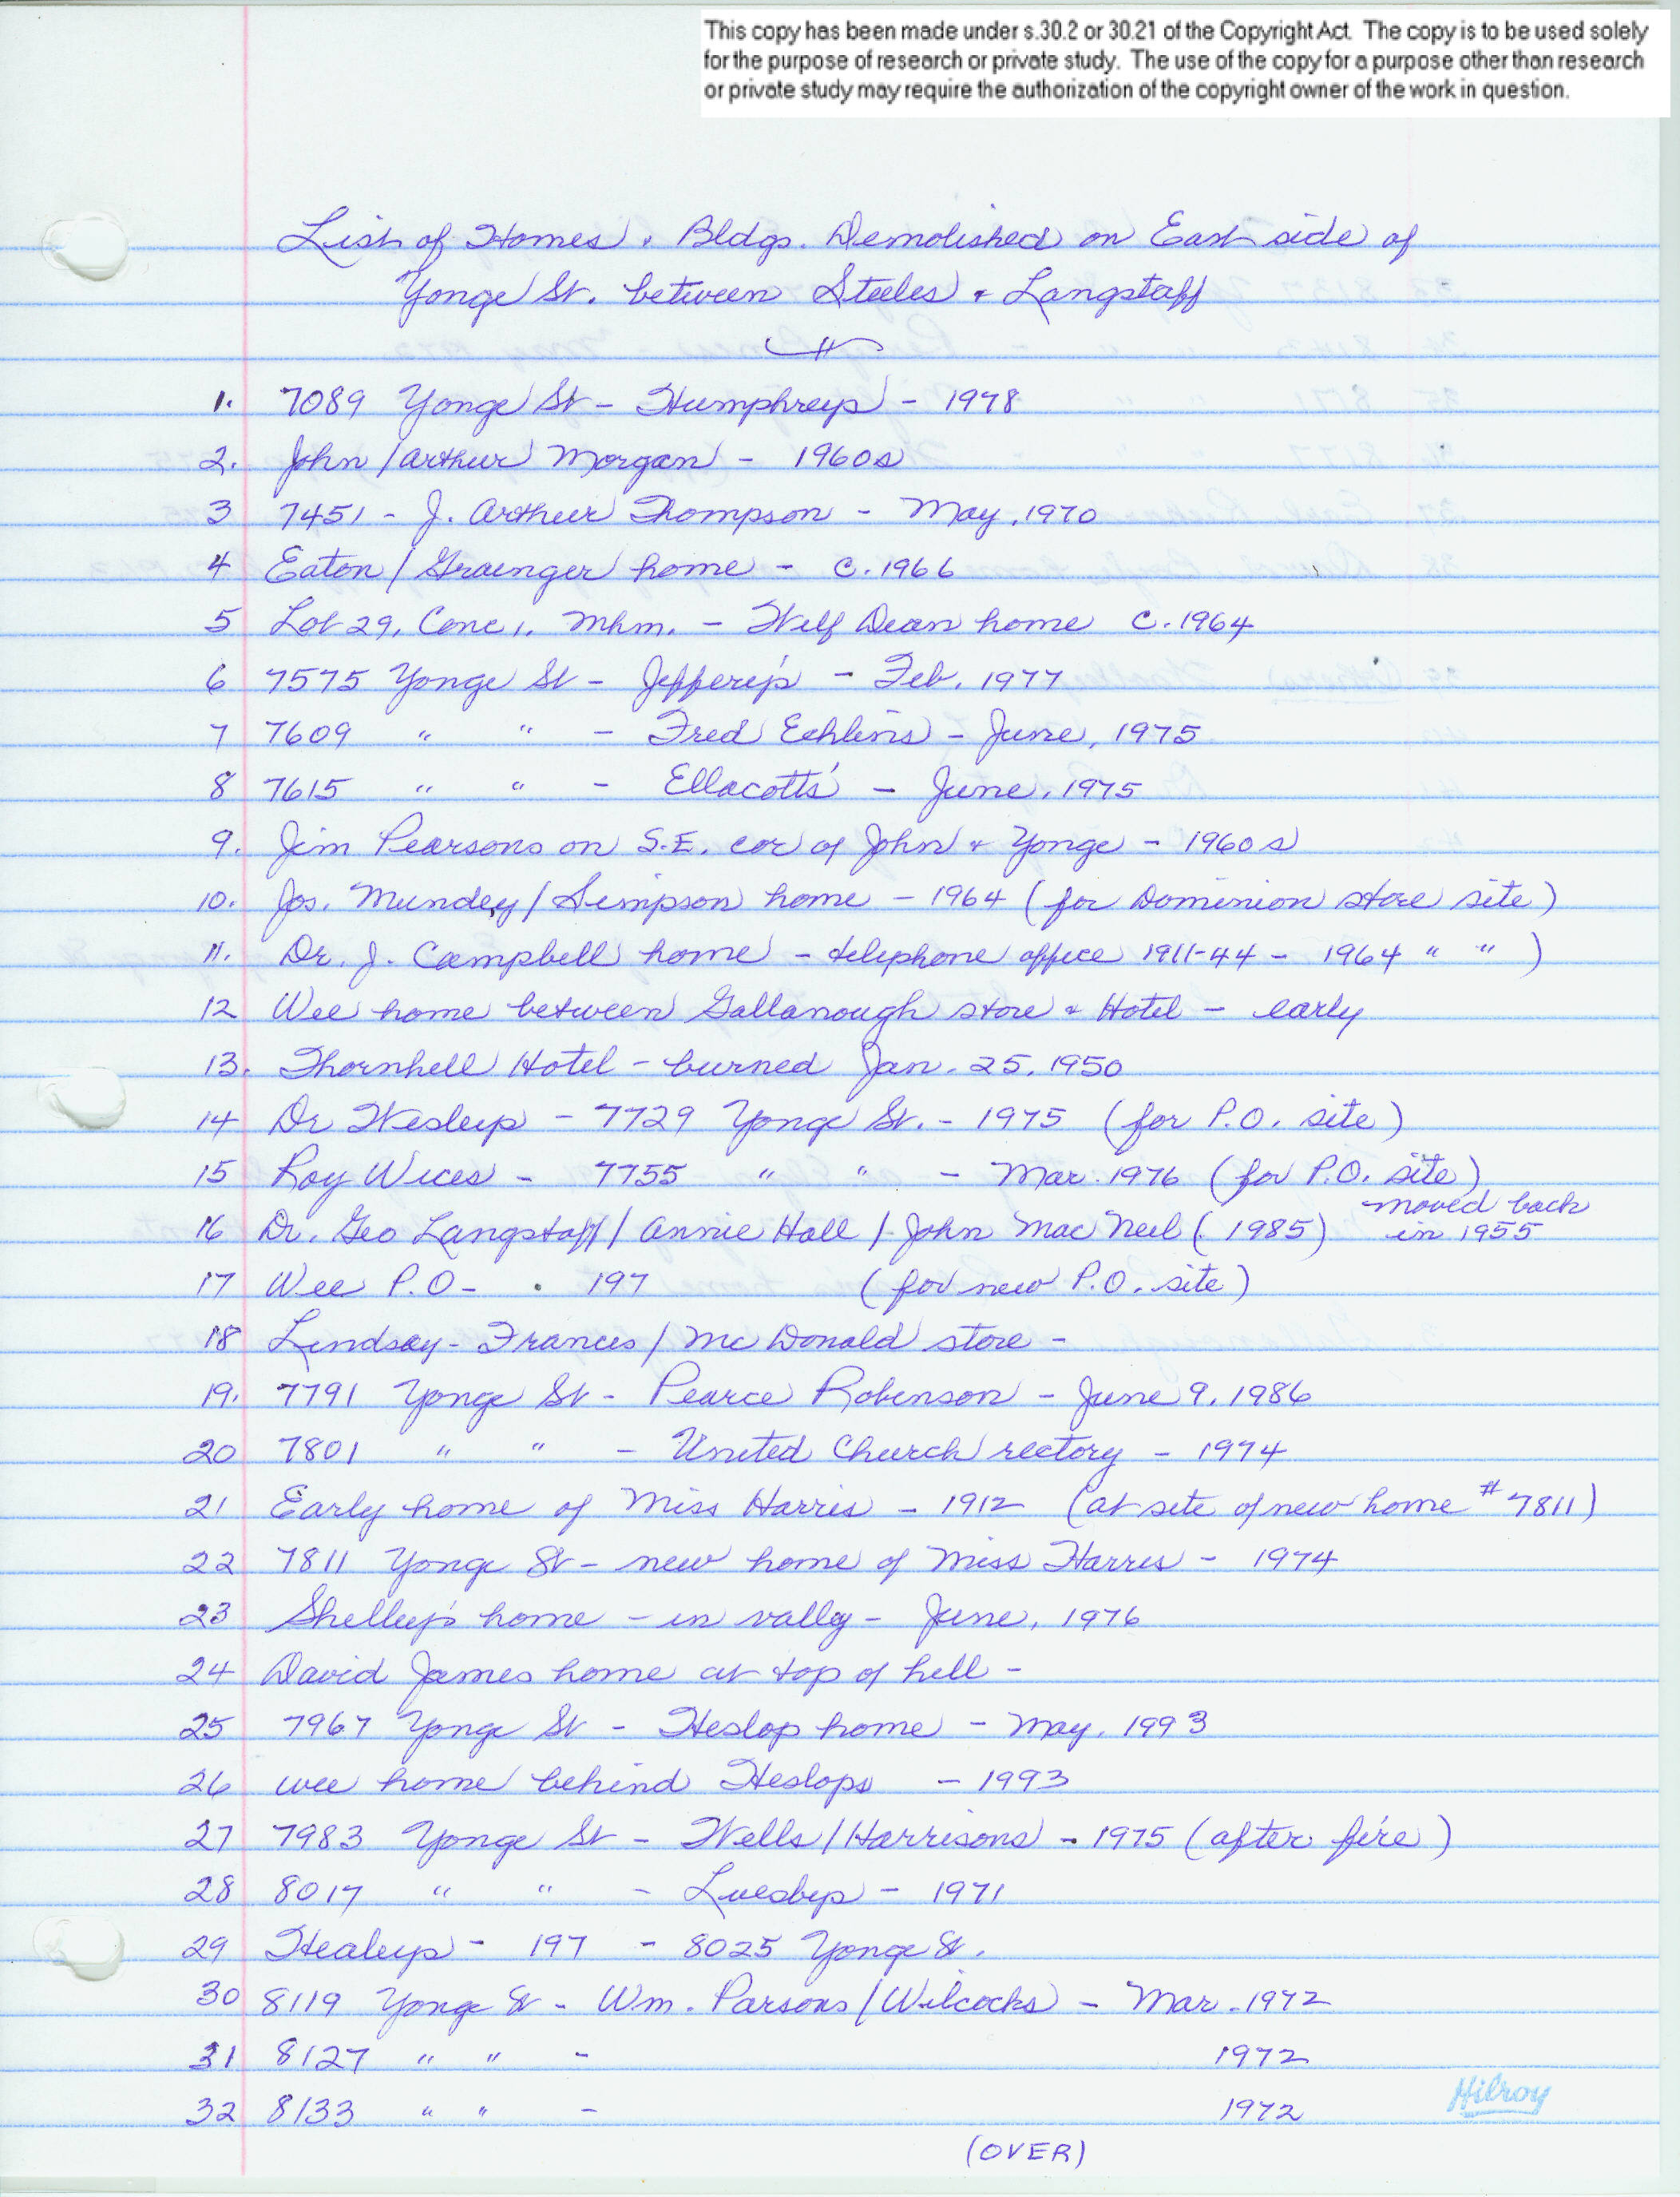 This copy has been made under s.30.2 or 30.21 of the Copyright Act. The copy is to be used solely
for the purpose of research or private study. The use of the copy for a purpose other than research
or private study may require the authorization of the copyright owner of the work in question.
List of Homes + Bldgs. Demolished on East side of
Yonge St. between Steeles + Langstaff
1. 7089 Yonge St - Humphreys - 1978
2. John / Arthur Morgan - 1960s
3 7451 - J. Arthur Thompson - May, 1970
4 Eaton / Grainger home - c. 1966
5 Lot 29, Conc 1, Mkm. - Wilf Dean home c. 1964
6 7575 Yonge St - Jeffery's - Feb. 1977
7 7609 " " - Fred Echlins - June, 1975
8 7615 " " - Ellacott's - June, 1975
9. Jim Pearsons on S.E. cor of John + Yonge - 1960s
10. Jos. Mundey / Simpson home - 1964 (for Dominion store site)
11. Dr. J. Campbell home - telephone office 1911-44 - 1964 " " )
12 Wee home between Gallanough store + Hotel - early
13. Thornhill Hotel - burned Jan. 25, 1950
14 Dr Heslup - 7729 Yonge St. - 1975 (for P.O. site)
15 Roy Wices - 7755 " " - Mar. 1976 (for P.O. site)
16 Dr. Geo Langstaff / Annie Hall / John MacNeil (1985) moved back
in 1955
17 Wee P.O - 197 (for new P.O. site)
18 Lindsay - Frances / McDonald store -
19. 7791 Yonge St - Pearce Robinson - June 9, 1986
20 7801 " " - United Church rectory - 1974
21 Early home of Miss Harris - 1912 (at site of new home #7811)
22 7811 Yonge St - new home of Miss Harris - 1974
23 Shelley's home - in vally - June, 1976
24 David James home at top of hill -
25 7967 Yonge St - Heslop home - May, 1993
26 wee home behind Heslops - 1993
27 7983 Yonge St - Wells / Harrisons - 1975 (after fire)
28 8017 " " - Luesbys - 1971
29 Healeys - 197 - 8025 Yonge St.
30 8119 Yonge St - Wm. Parsons / Wilcocks - Mar. 1972
31 8127 " " - 1972
32 8133 " " - 1972
Hilroy
(OVER)